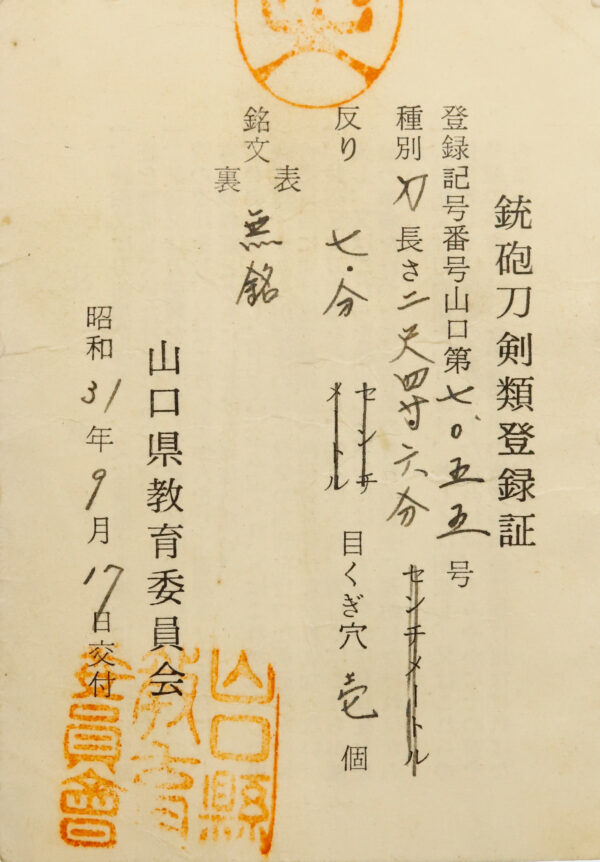 銃砲刀剣類登録証
登録記号番号山口第七〇五五号
種別刀長さ二尺四寸六分センチメートル
反り七.分センチメートル目くぎ穴壱個
銘文
表
裏
無銘
山口県教育委員会
昭和31年9月17日交付
山口縣
教育
委員會